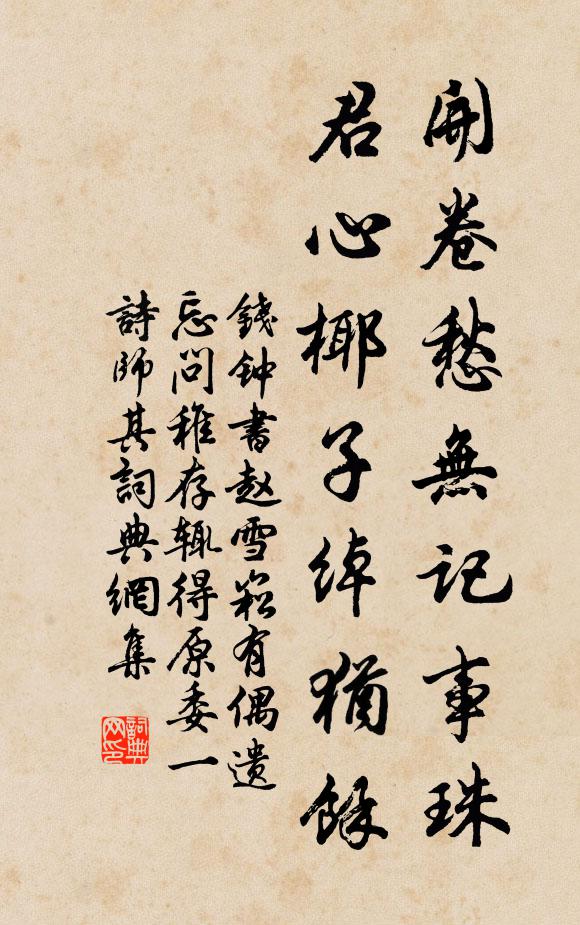 開卷愁無記事珠
君心椰子綽猶餘
錢钟書赵雪崧有偶遺
忘问稚存辄得原委一
詩師其詞典網集
詞典
网印